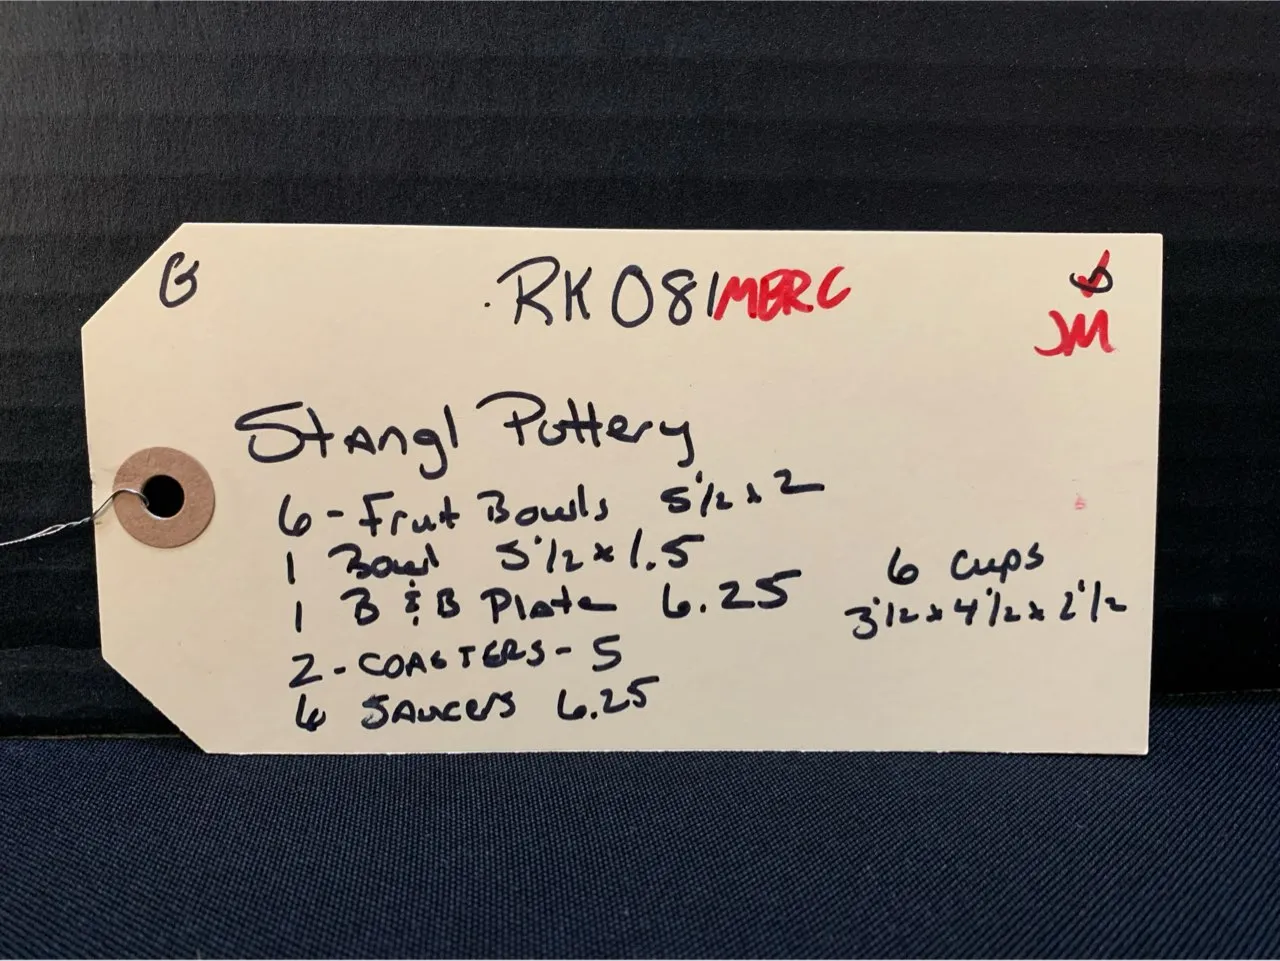 RK081MBRC
JM
Stangl Pottery
6 - Frut Bowls 5 1/2 x 2
1 Bowl 5 1/2 x 1.5
1 B & B Plate 6.25
2 - COASTERS - 5
6 SAUCERS 6.25
6 Cups
3 1/2 x 4 1/2 x 2 1/2